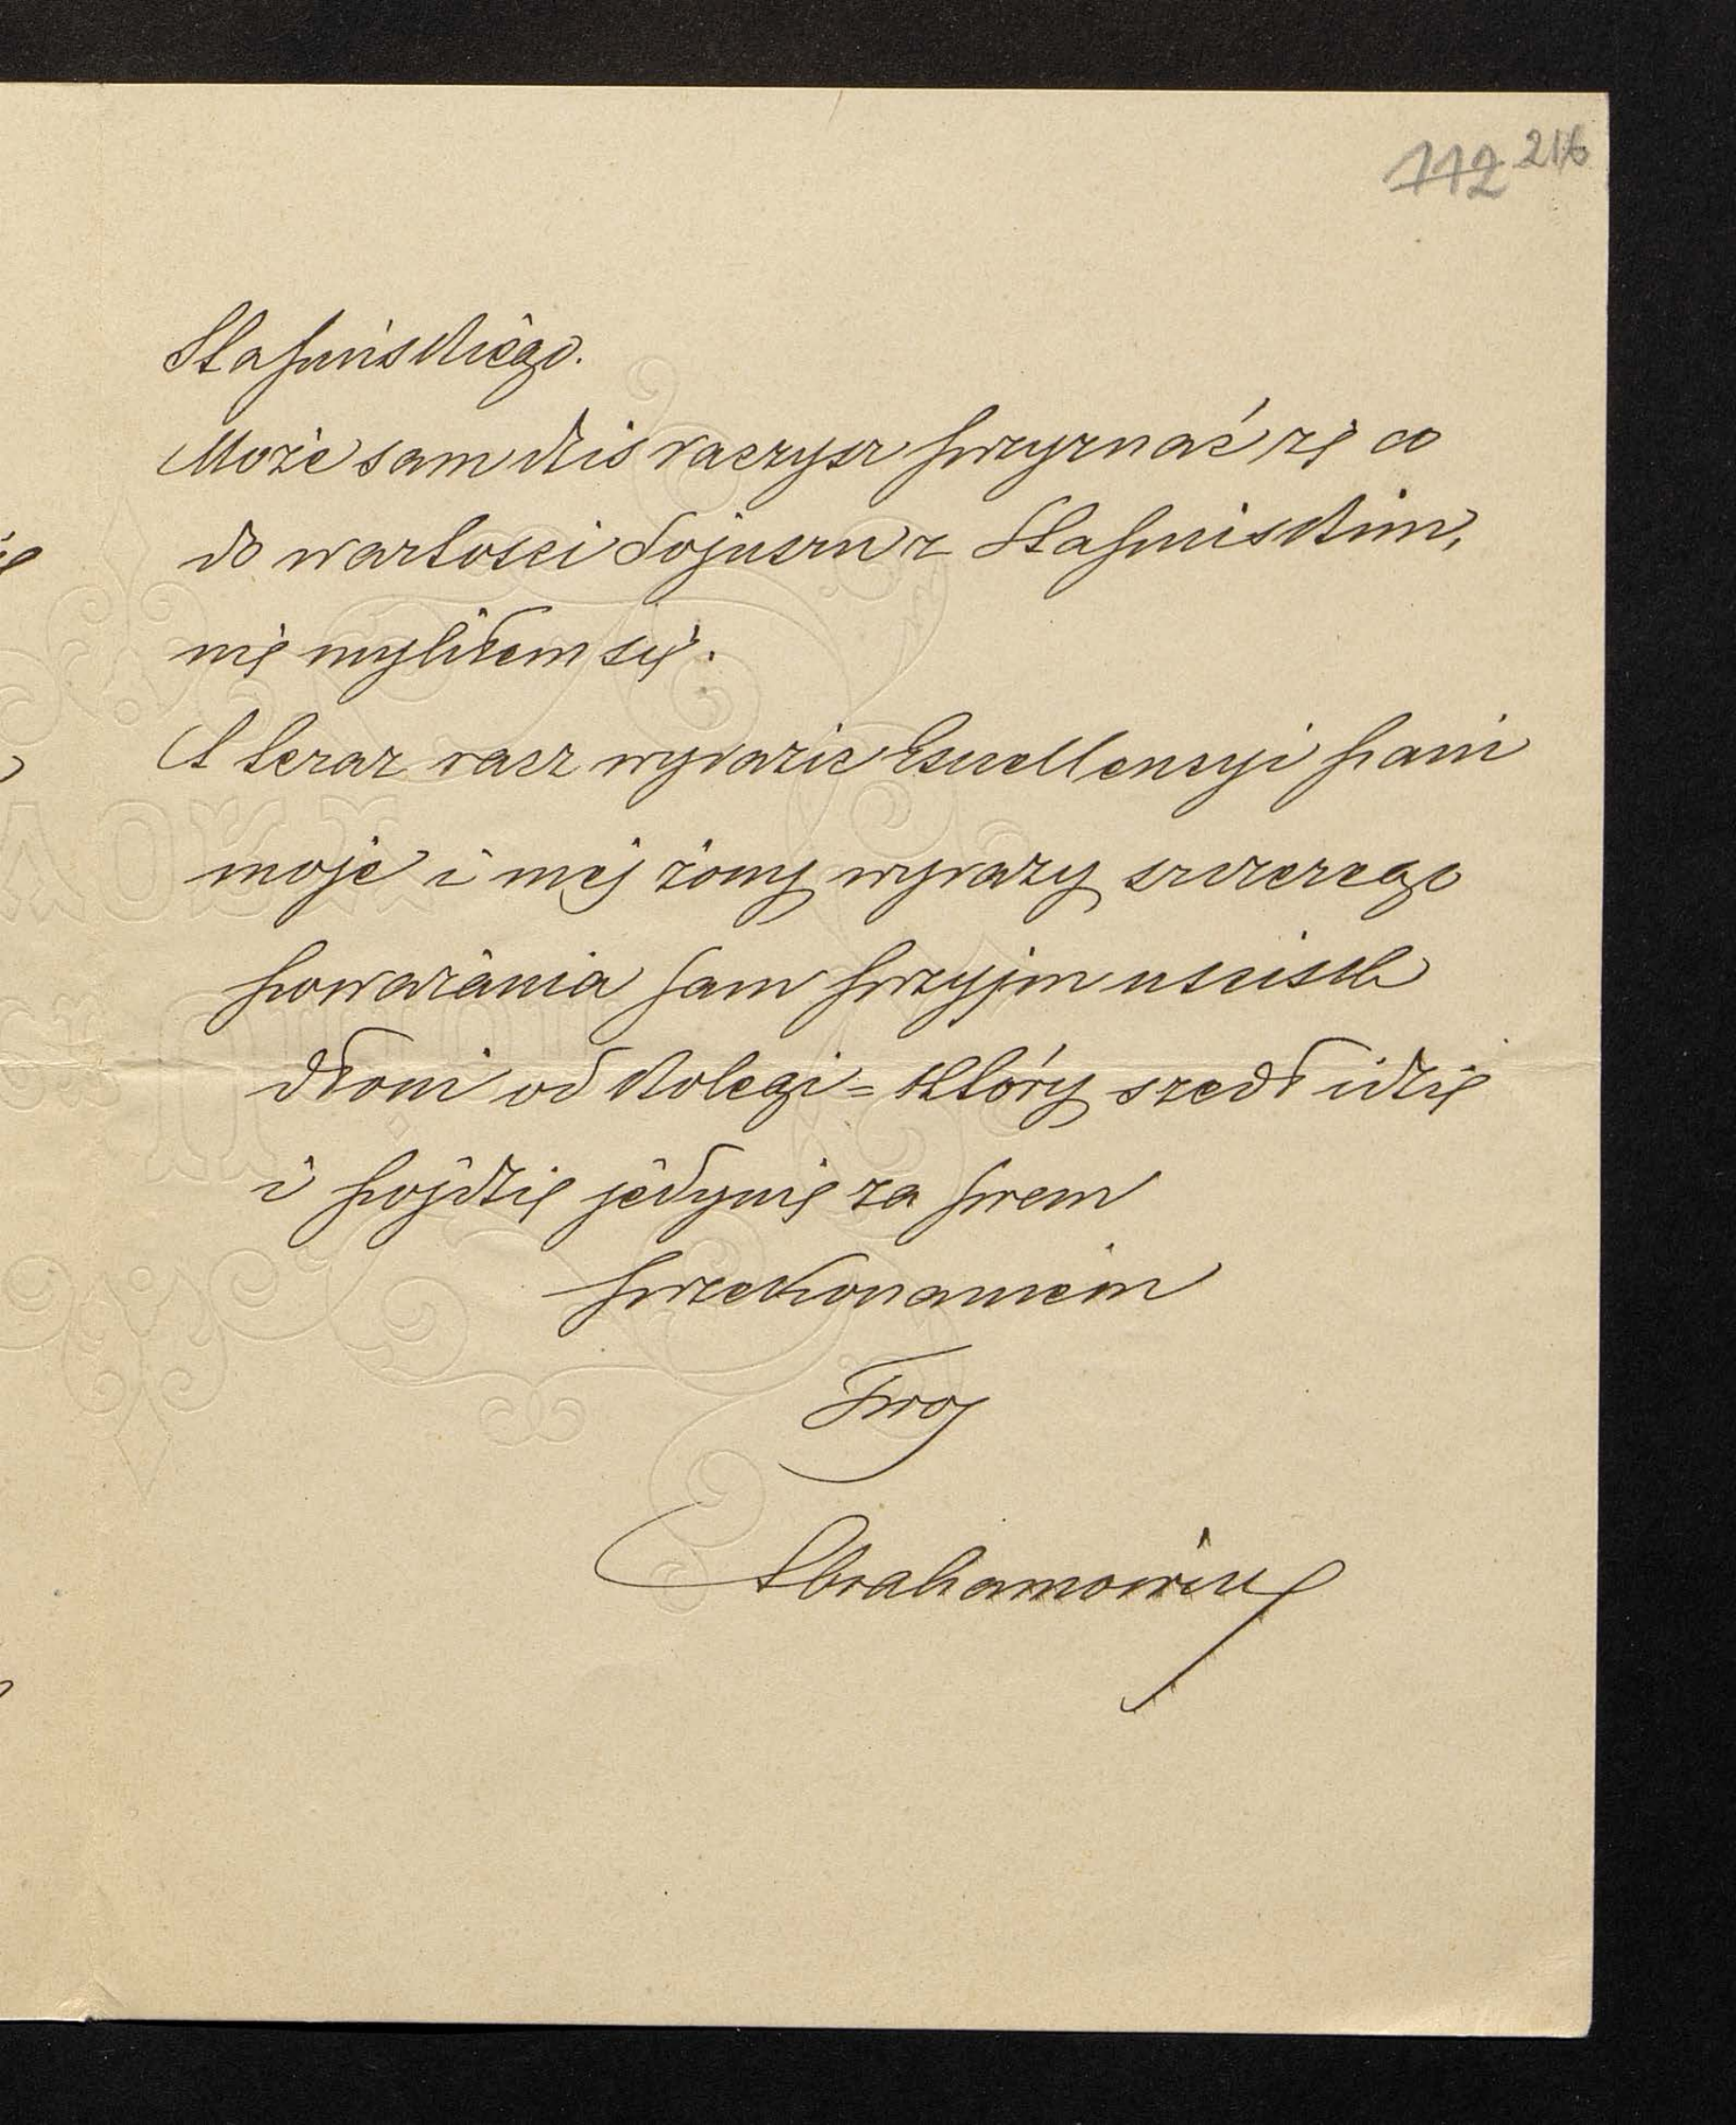 112 216
Stapińskiego.
Może sam dziś raczysz przyznać że co
do wartości Sojuszu z Stapińskim,
nie myliłem się.
A teraz racz wyrazić Excellencyi pani
moje i mej żony wyrazy szczerego
poważania sam przyjm uścisk
dłoni od kolegi = który szedł idzie
i pójdzie jedynie za swem
przekonaniem
Twoj
Abrahamowicz